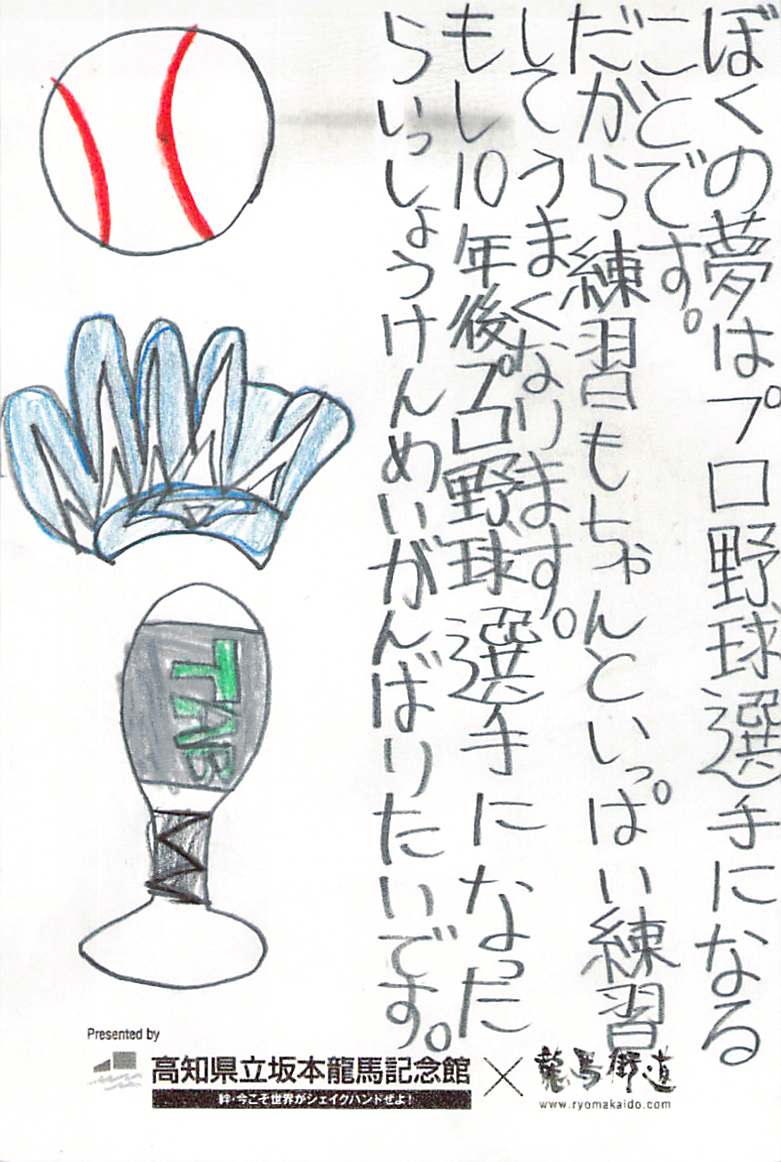 ぼくの夢はプロ野球選手になる
ことです。
だから練習もちゃんといっぱい練習
してうまくなります。
もし10年後プロ野球選手になった
らいっしょうけんめいがんばりたいです。
TAB
Presented by
高知県立坂本龍馬記念館×龍馬街道
絆・今こそ世界がシェイクハンドぜよ!
www.ryomakaido.com